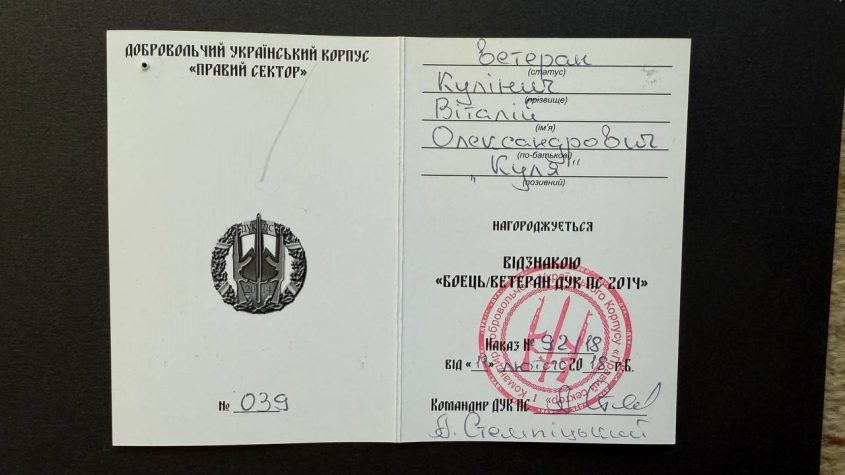 ДОБРОВОЛЬЧИЙ УКРАЇНСЬКИЙ КОРПУС
«ПРАВИЙ СЕКТОР»
ДУК ПС
№ 039
Ветеран
(статус)
Кулінич
(прізвище)
Віталій
(ім'я)
Олександрович
(по-батькові)
„Куля"
(позивний)
НАГОРОДЖУЄТЬСЯ
ВІДЗНАКОЮ
«БОЄЦЬ/ВЕТЕРАН ДУК ПС 2014»
Наказ № 92/18
від « » лютого 2018 р.Б.
Командир ДУК ПС
А. Стемпіцький
Командир Добровольчого Українського Корпусу «Правий сектор»